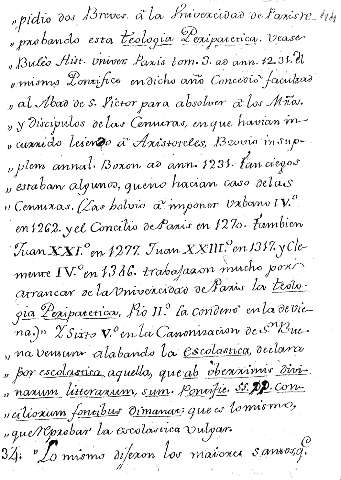 „ pidio dos Breves. â la Univercidad de Paris re-
„ probando esta teologia Peripatetica. Vease
Buleo Hist. Univer Paris tom. 3. ad ann. 1231. el
„ mismo Pontifice en dicho año Concedió facultad
„ al Abad de S. Victor para absolver â los Mños.
„ y discipulos de las Censuras, en que havian in-
„ currido leiendo â Aristoteles, Bzovio in sup-
„ plem annal. Boron ad ann. 1231. Tan ciegos
„ estaban algunos, que no hacian caso de las
„ Censuras. (Las bolvio â imponer Urbano IV.º
en 1262. y el Concilio de Paris en 1270. Tambien
Juan XXI.º en 1277. Juan XXIII.º en 1317. y Cle-
mente IV.º en 1346. trabajaron mucho por
arrancar de la Univercidad de Paris la teolo-
gia Peripatetica, Pio II.º la condenó en la de vie-
na.)„ Y Sixto V.º en la Canonizacion de S.n Bue-
„ na Ventura alabando la escolastica, declara
„ por escolastica aquella, que ab uberrimis divi-
„ narum litterarum, sum. Pontific. SS. PP. con-
„ ciliorum fontibus dimanat: que es lo mismo,
„ que reprobar la escolastica vulgar.
34. „ Lo mismo dijeron los maiores santos, q.e